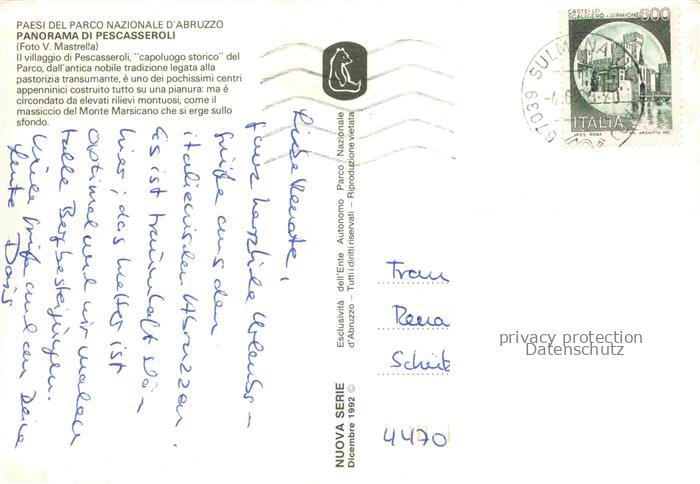 PAESI DEL PARCO NAZIONALE D'ABRUZZO
PANORAMA DI PESCASSEROLI
(Foto V. Mastrella)
Il villaggio di Pescasseroli, "capoluogo storico" del
Parco, dall'antica nobile tradizione legata alla
pastorizia transumante, è uno dei pochissimi centri
appenninici costruito tutto su una pianura: ma è
circondato da elevati rilievi montuosi, come il
massiccio del Monte Marsicano che si erge sullo
sfondo.
Liebe Renate,
ganz herzliche Urlaubs-
grüße aus den
italienischen Abruzzen.
Es ist traumhaft schö-
hier; das Wetter ist
optimal und wir machen
tolle Bergbesteigungen.
Viele Grüße und an Deine
Leute Doris
NUOVA SERIE
Dicembre 1992 ©
Esclusività dell'Ente Autonomo Parco Nazionale
d'Abruzzo – Tutti i diritti riservati – Riproduzione vietata
CASTELLO
SCALIGERO - SIRMIONE
600
ITALIA
I.P.Z.S. ROMA
67039 SULMONA
Frau
Rena
4470
privacy protection
Datenschutz